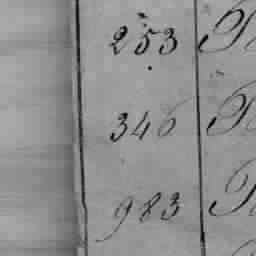 253
346
983